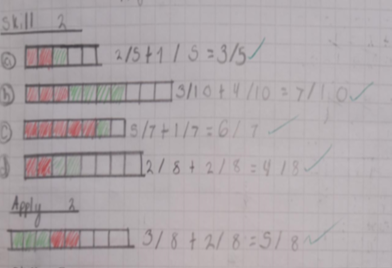 Skill 2
a 2/5+1/5=3/5
b 3/10+4/10=7/10
c 5/7+1/7=6/7
d 2/8+2/8=4/8
Apply 2
3/8+2/8=5/8